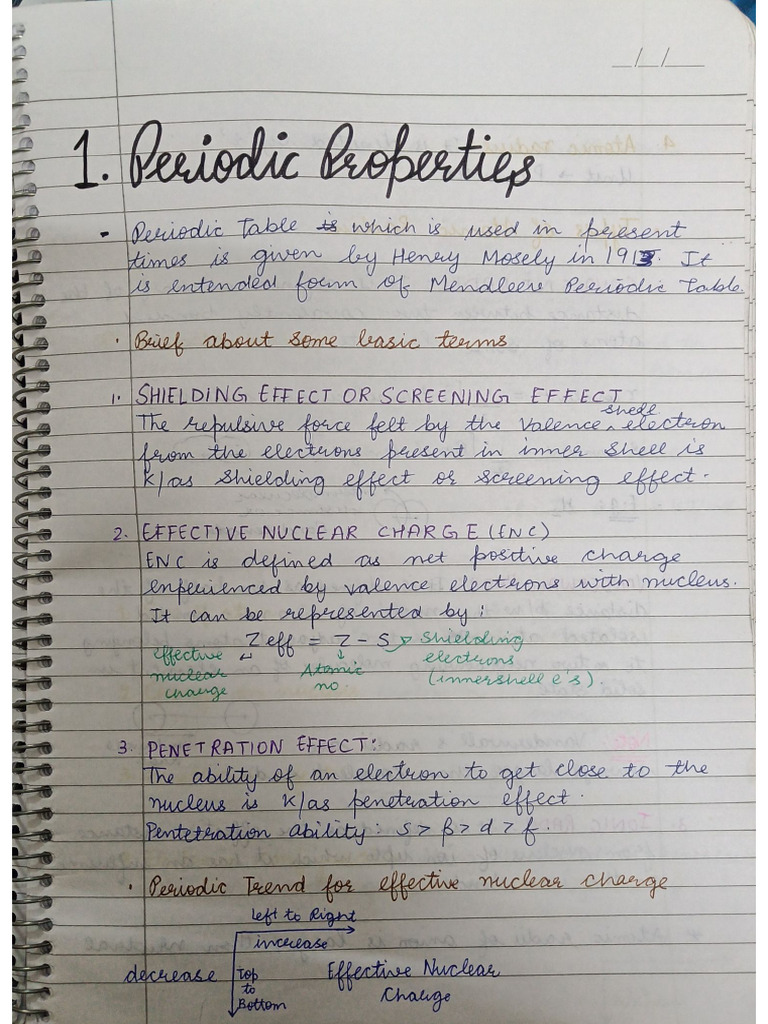 __/__/____
1. Periodic Properties
- Periodic Table is which is used in present
times is given by Henry Mosely in 1913. It
is extended form of Mendleeve Periodic Table.
· Brief about some basic terms
1. SHIELDING EFFECT OR SCREENING EFFECT
The repulsive force felt by the valence shell electron
from the electrons present in inner shell is
k/as shielding effect or screening effect.
2. EFFECTIVE NUCLEAR CHARGE (ENC)
ENC is defined as net positive charge
experienced by valence electrons with nucleus.
It can be represented by:
Zeff = Z - S → Shielding
effective nuclear charge ↓ Atomic no. electrons (innershell e's).
3. PENETRATION EFFECT:
The ability of an electron to get close to the
nucleus is k/as penetration effect.
Pentetration ability: s > p > d > f.
· Periodic Trend for effective nuclear charge
left to Right
increase
decrease Top to Bottom Effective Nuclear
Charge